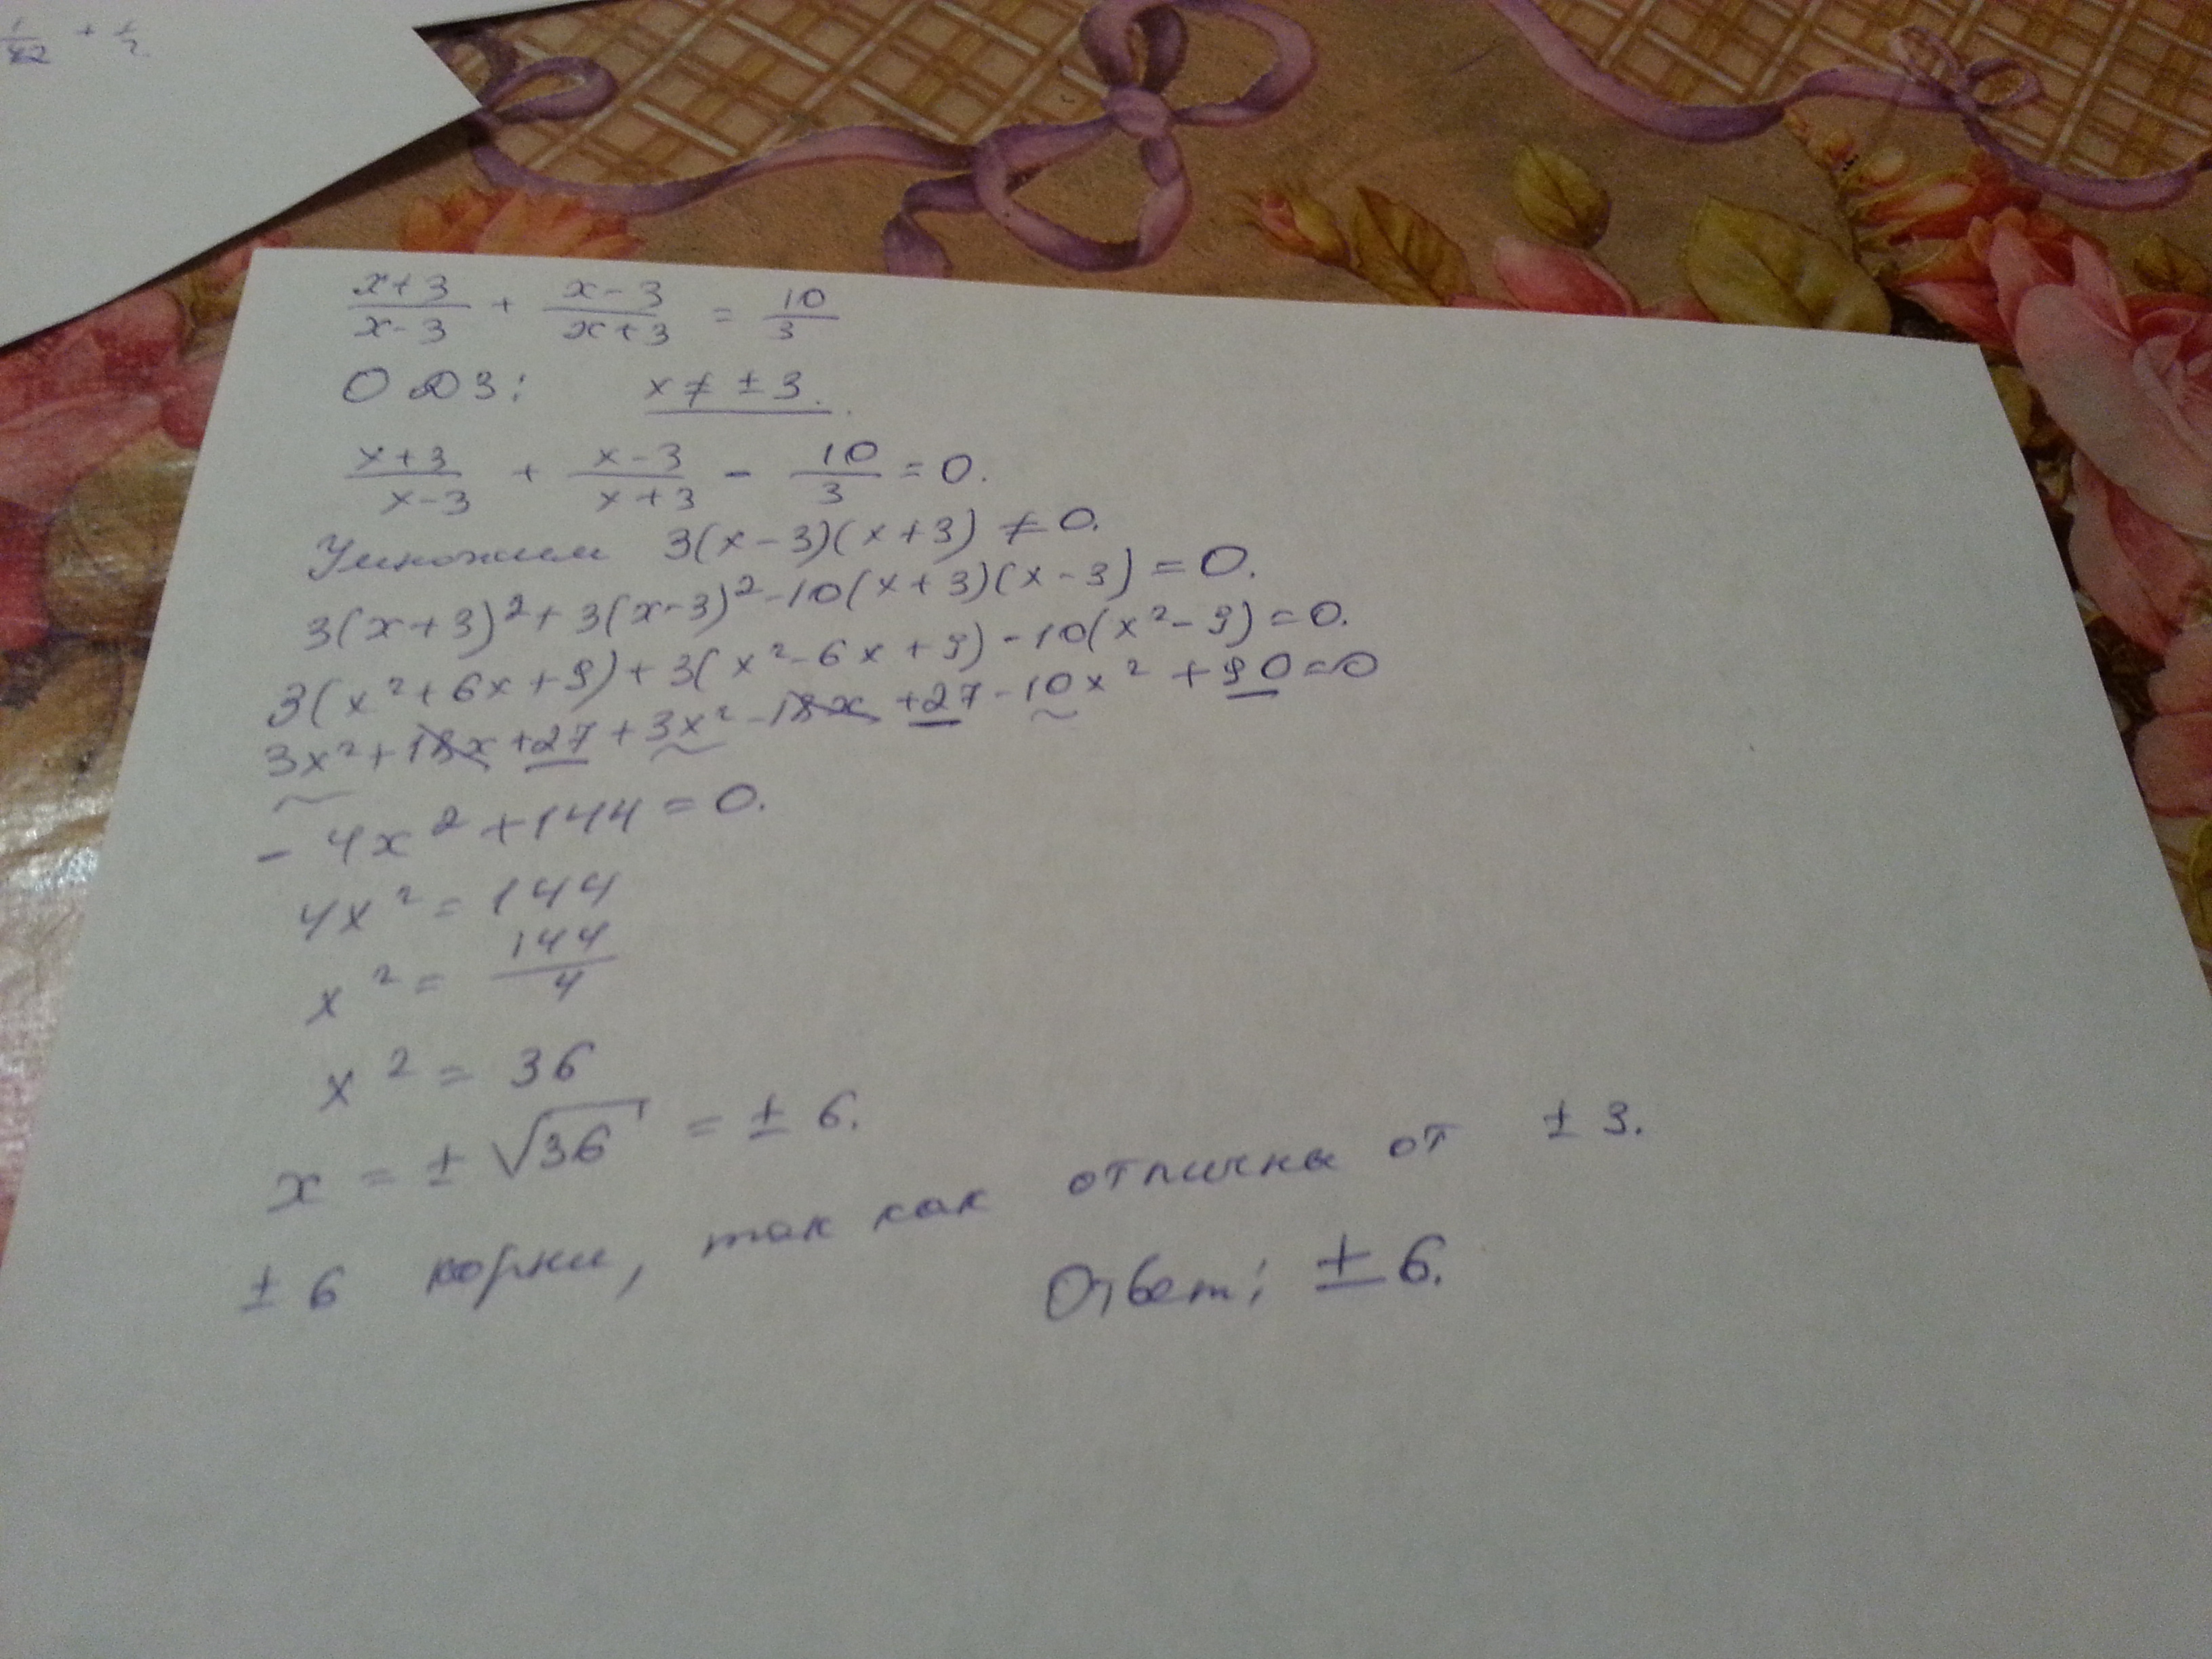 1/42 + 1/7
(x+3)/(x-3) + (x-3)/(x+3) = 10/3
ОДЗ: x ≠ ± 3.
(x+3)/(x-3) + (x-3)/(x+3) - 10/3 = 0.
Умножим 3(x-3)(x+3) ≠ 0.
3(x+3)² + 3(x-3)² - 10(x+3)(x-3) = 0.
3(x² + 6x + 9) + 3(x² - 6x + 9) - 10(x² - 9) = 0.
3x² + 18x + 27 + 3x² - 18x + 27 - 10x² + 90 = 0
- 4x² + 144 = 0.
4x² = 144
x² = 144/4
x² = 36
x = ± √36 = ± 6.
± 6 корни, так как отличны от ± 3.
Ответ: ± 6.